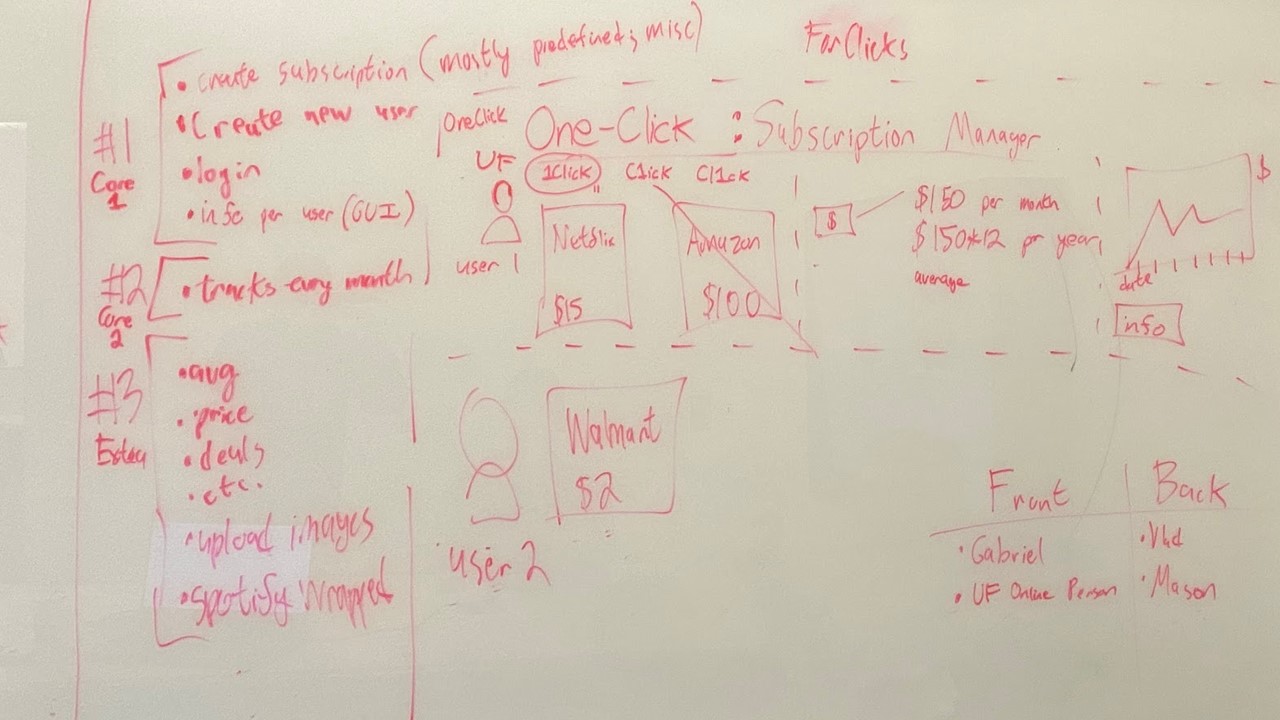 • create subscription (mostly predefined; misc)
• Create new user
• login
• info per user (GUI)
#1
Core
1
#2
Core
2
• tracks every month
#3
Extra
• avg
• price
• deals
• etc.
• upload images
• spotify Wrapped
ForClicks
OneClick
One-Click : Subscription Manager
UF
1Click
C1ick
Cl1ck
user 1
Netflix
$15
Amazon
$100
$
$150 per month
$150*12 per year
average
$
date
info
user 2
Walmart
$2
Front
Back
• Gabriel
• UF Online Person
• Vlad
• Mason